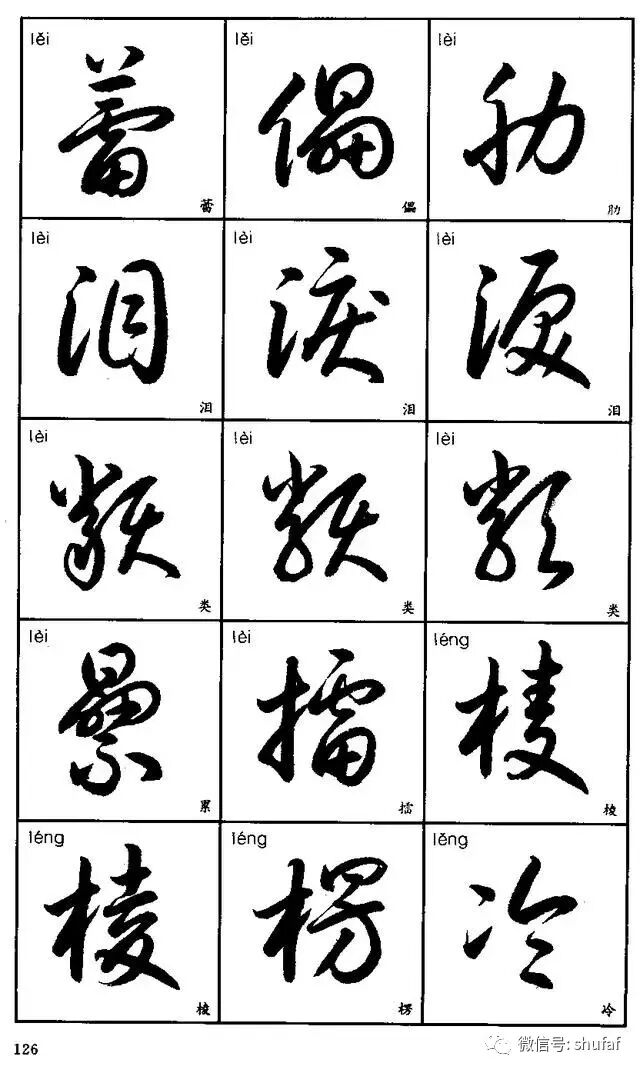 lěi lěi lèi
蕾 儡 肋
蕾 儡 肋
lèi lèi lèi
泪 淚 淚
泪 泪 泪
lèi lèi lèi
類 類 類
类 类 类
lèi lèi léng
纍 擂 棱
累 擂 棱
léng léng lěng
棱 楞 冷
棱 楞 冷
126
微信号: shufaf